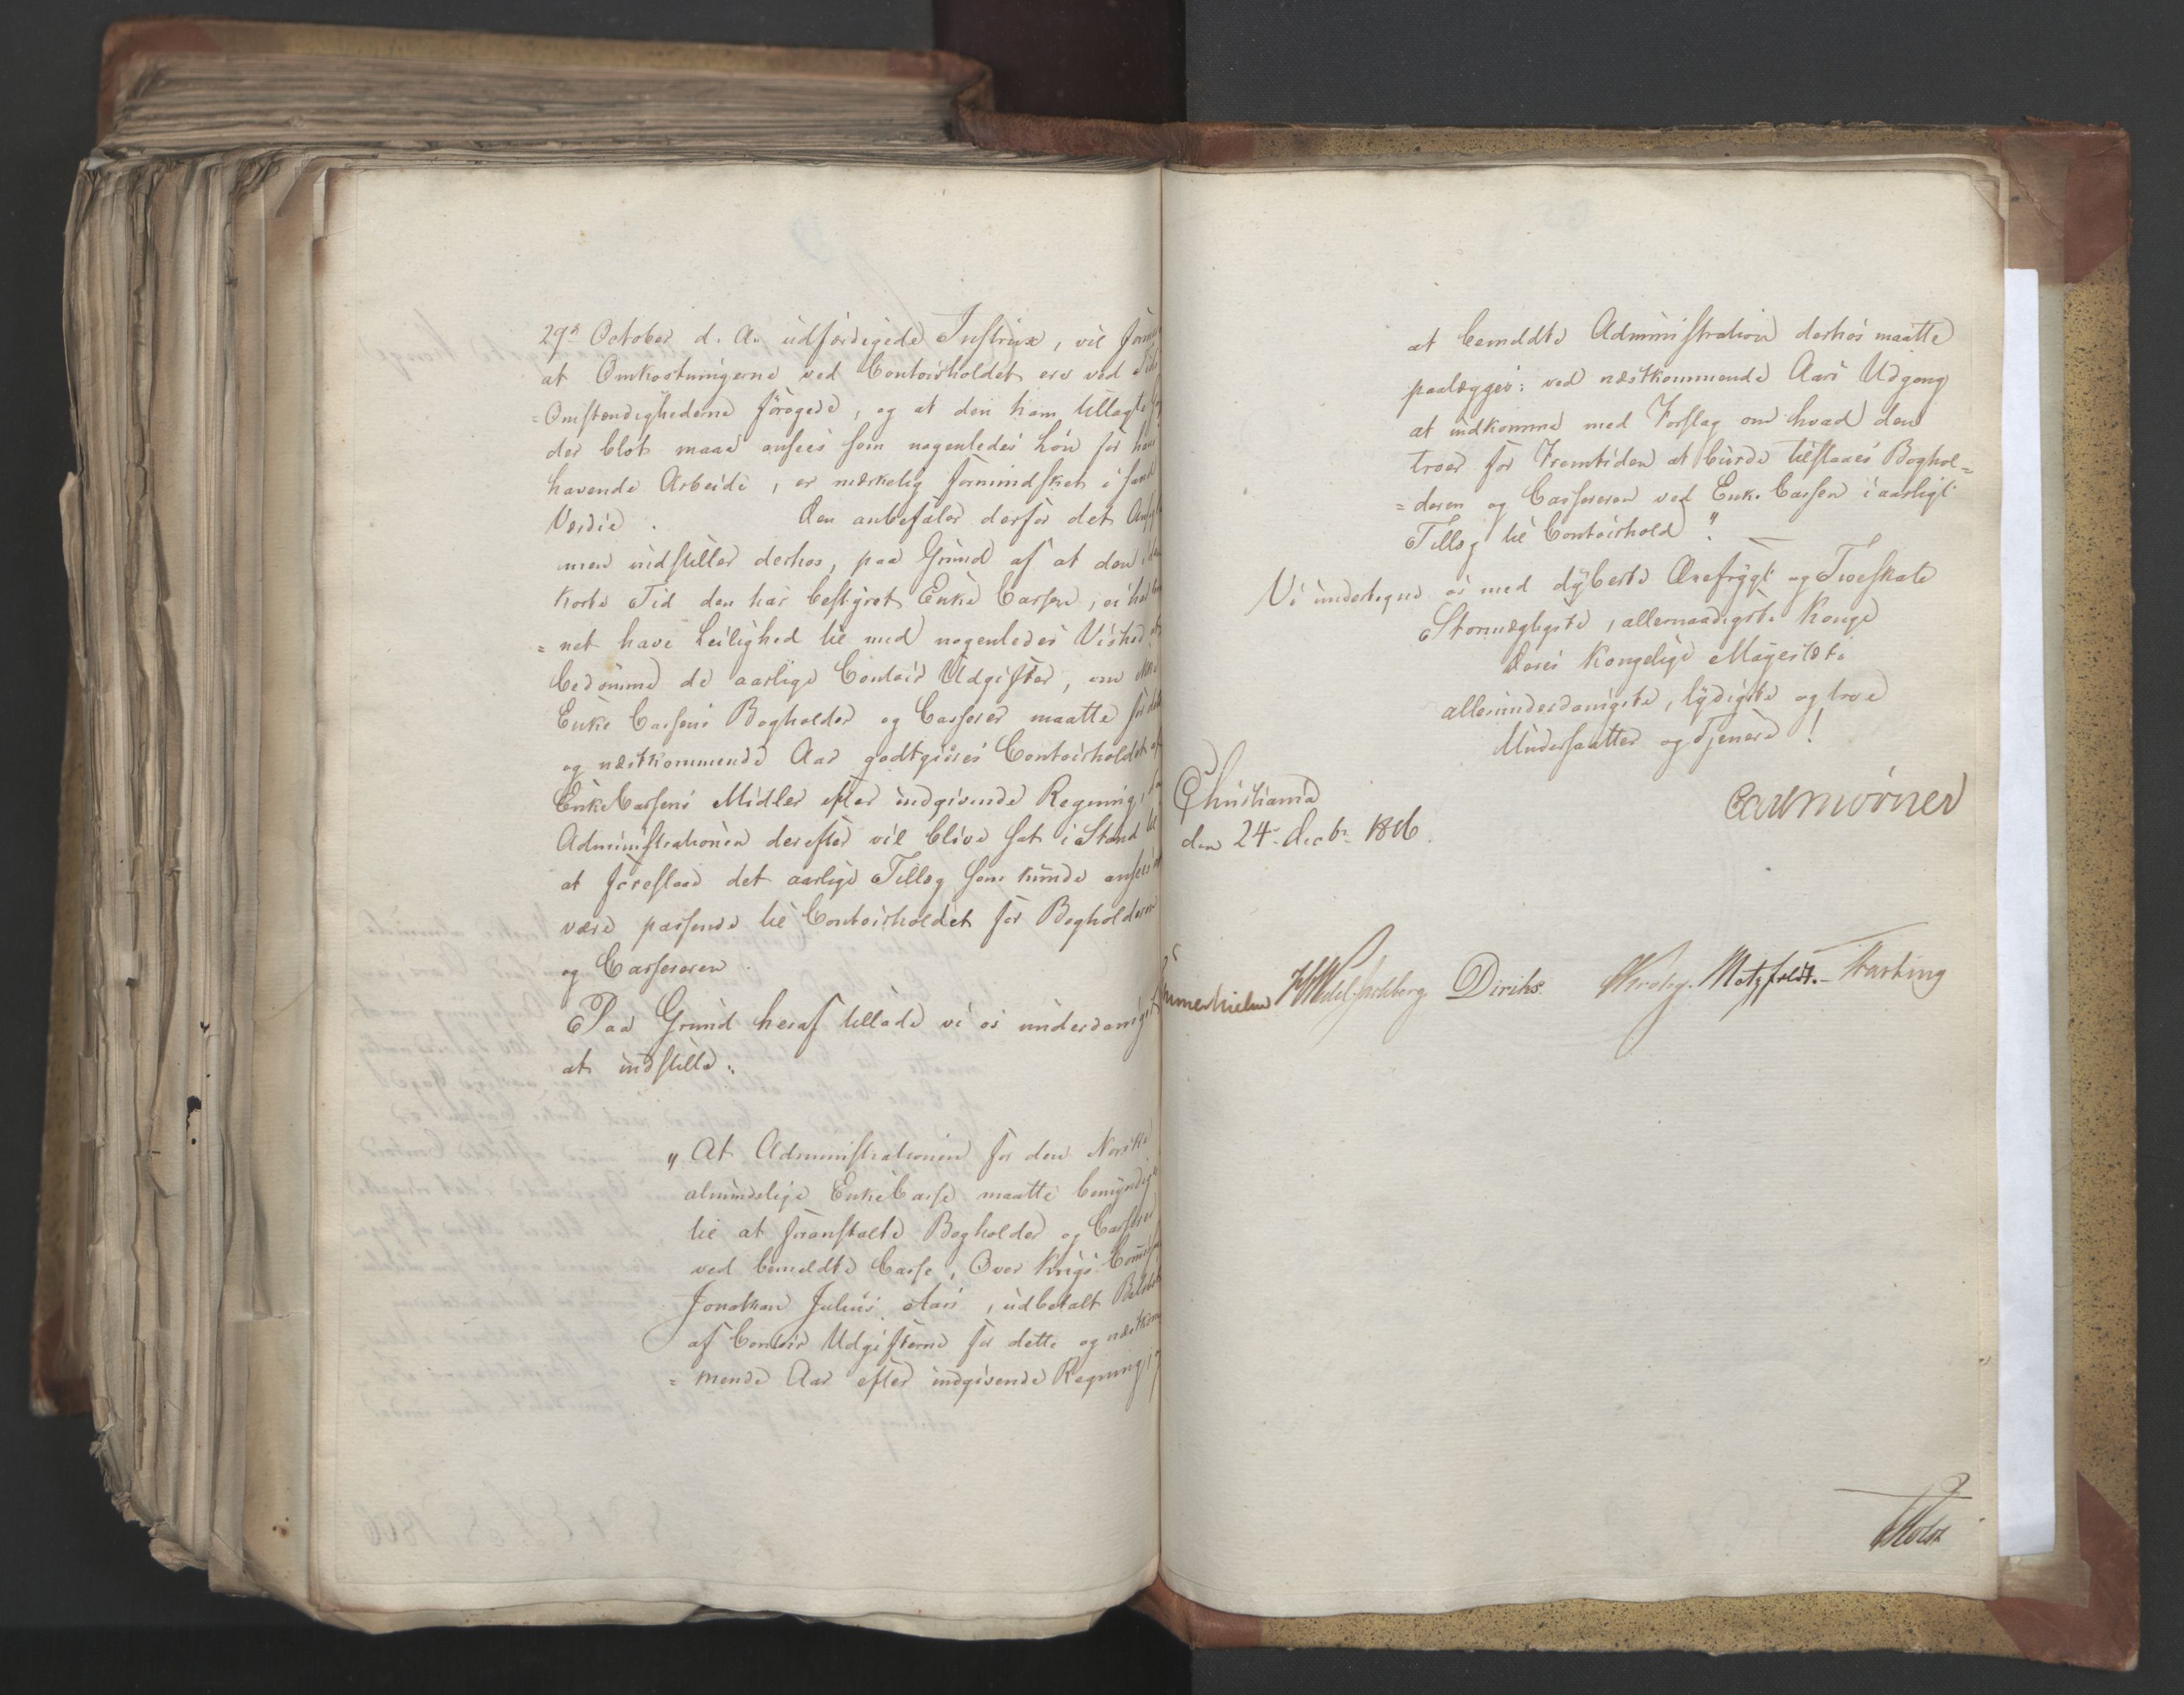 29de October d. A. udfærdigede Instrux, vil
at Omkostningerne ved Contoirholdet ere ved Tids
=Omstændighederne forøgede, og at den ham tillagte
der blot maae ansees som nogenledes Løn for
havende Arbeide, er mærkelig formindsket i
Værdie. Den anbefaler derfor det
men indstiller derhos, paa Grund af at den, i den
korte Tid den har bestyret Enke Cassen, ei
=net have Leilighed til med nogenledes Vished at
bedømme de aarlige Contoir Udgifter, om
Enke Cassens Bogholder og Casserer maatte for dette
og næstkommende Aar godtgiøres Contoirholdet af
EnkeCassens Midler efter indgivende Regning,
Administrationen derefter vil blive sat i Stand til
at foreslaae det aarlige Tillæg som kunde ansees
være passende til Contoirholdet for Bogholderen
og Cassereren.
Paa Grund heraf tillade vi os underdanigst
at indstille:
"At Administrationen for den Norske
almindelige EnkeCasse maatte bemyndiges
til at foranstalte Bogholder og Casserer
ved bemeldte Casse, Over Krigs
Jonathan Julius Aars, udbetalt Beløbet
af Contoir Udgifterne for dette og næstkom
=mende Aar efter indgivende Regning,
at bemeldte Administration derhos maatte
paalægges: ved næstkommende Aars Udgang
at indkomme med Forslag om hvad den
troer for Fremtiden at burde tilstaaes Boghol=
=deren og Cassereren ved Enke Cassen i aarligt
Tillæg til Contoirhold."
Vi undertegne os med dybeste Ærefrygt og Troeskab
Stormægtigste, allernaadigste Konge
Deres Kongelige Majestæts
allerunderdanigste, lydigste og troe
Undersaatter og Tjenere!
Christiania
den 24 Decbr 1816.
Carl Mörner
Sommerhielm HWedel Jarlsberg Diriks Krohg. Motzfeldt. Hasting
Holst